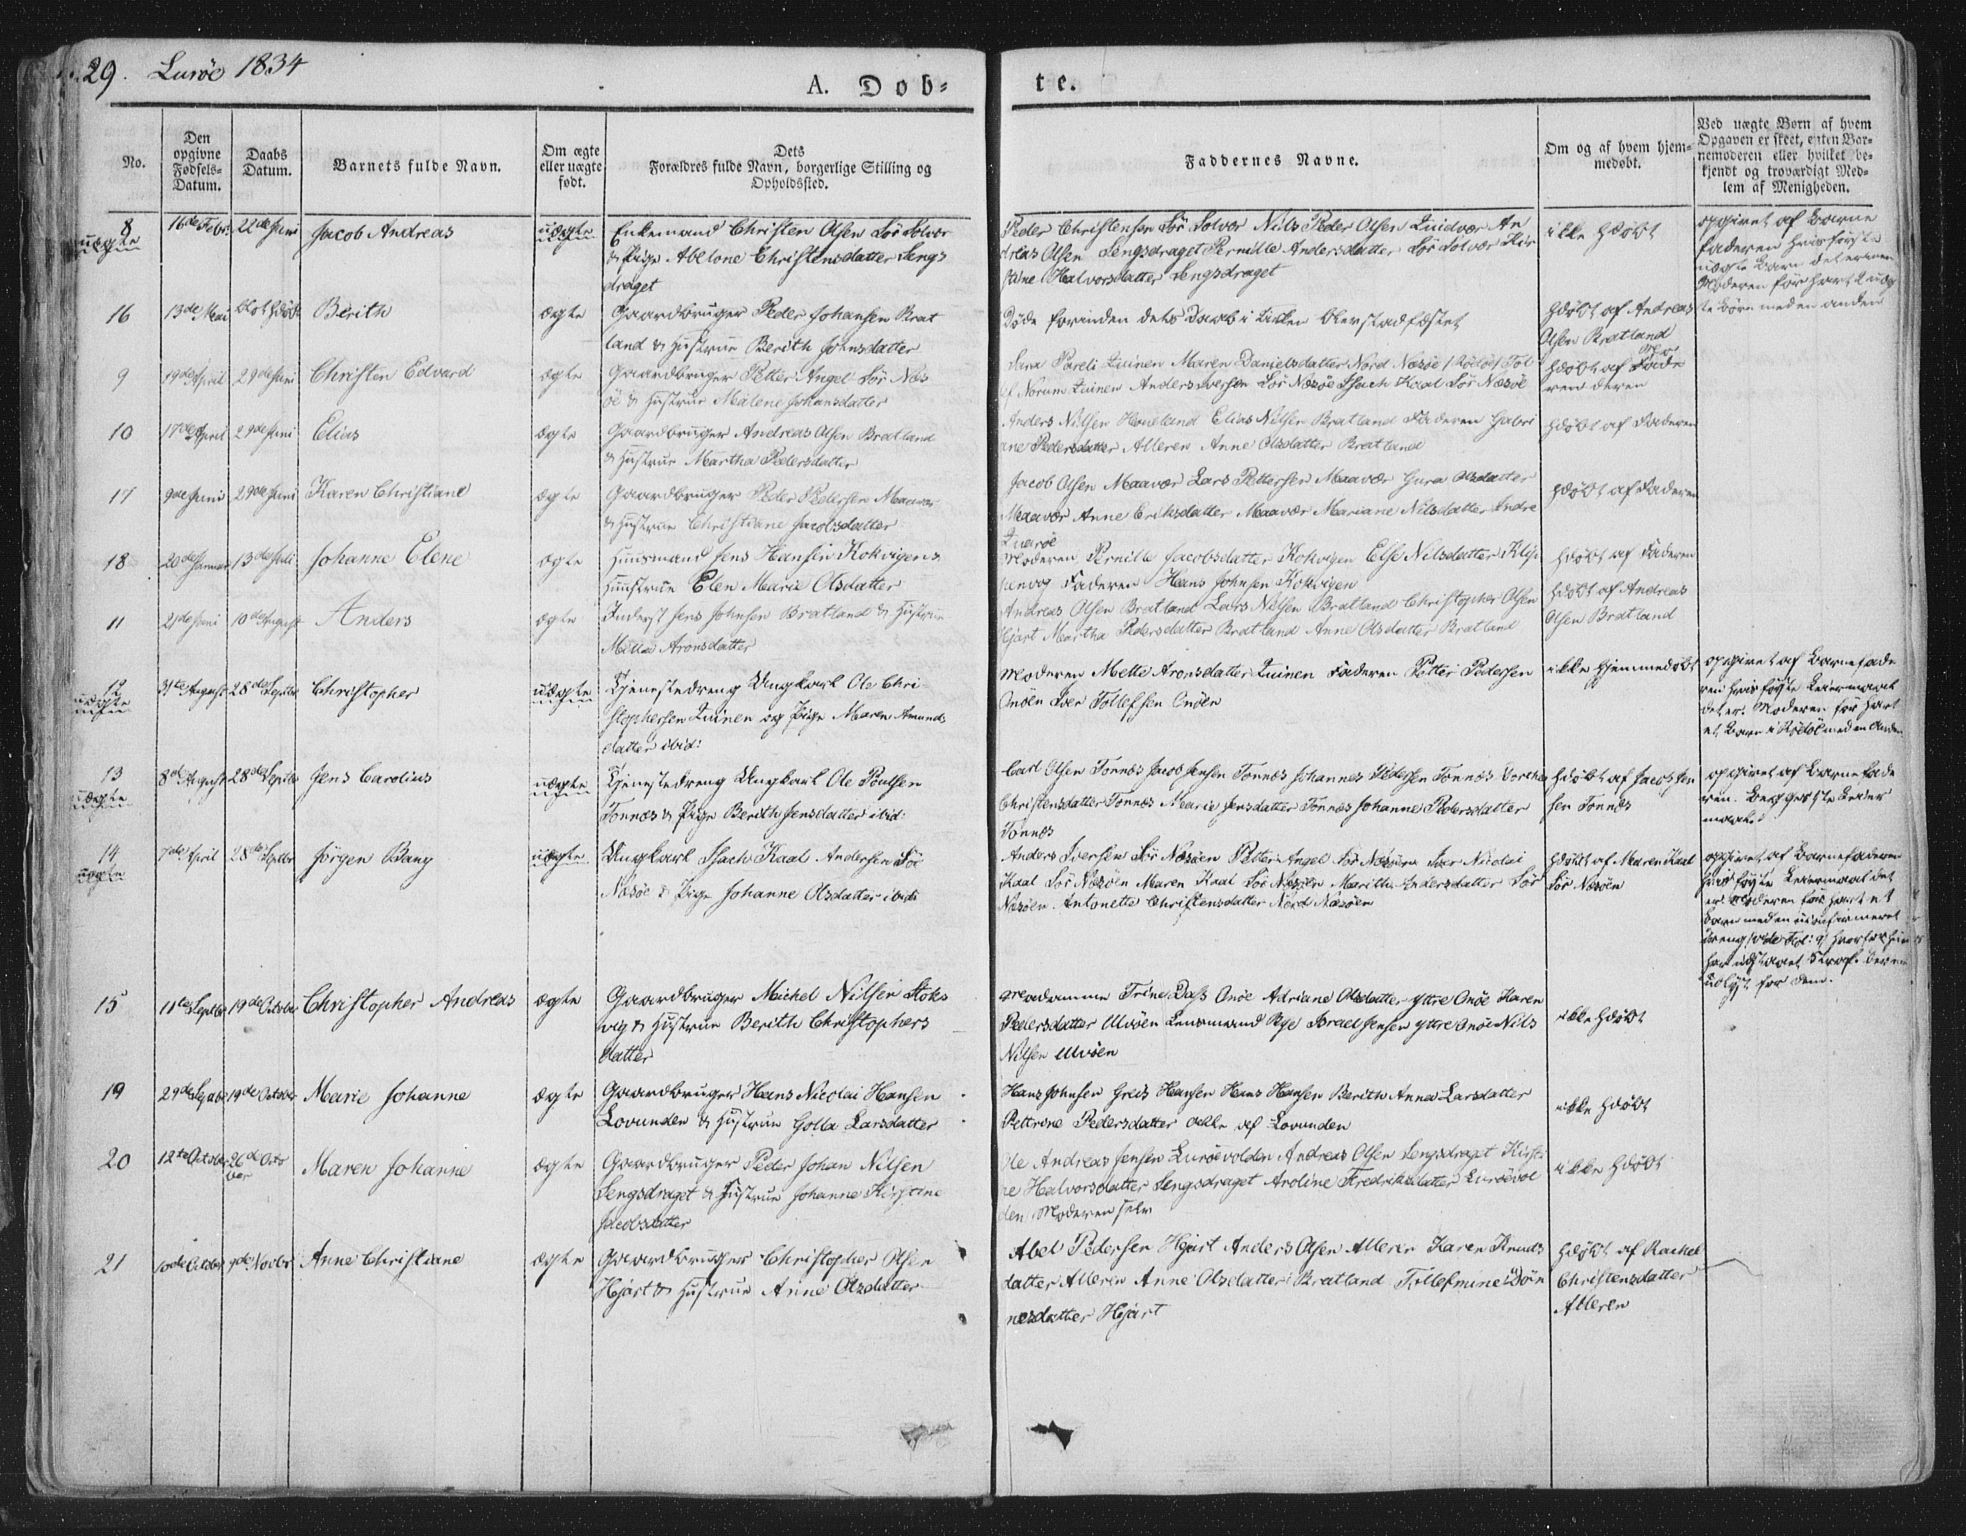 29. Lurøe 1834
A. Døb-
te.
No.
Den opgivne Fødsels-Datum.
Daabs Datum.
Barnets fulde Navn.
Om ægte eller uægte født.
Dets
Forældres fulde Navn, borgerlige Stilling og
Opholdssted.
Faddernes Navne.
Om og af hvem hjem-
medøbt.
Ved uægte Børn af hvem
Opgaven er skeet, enten Bar-
nemoderen eller hvilket be-
kjendt og troværdigt Med-
lem af Menigheden.
8 uægte 16de Febr: 22de Juni Jacob Andreas uægte
Enkemand Christen Olsen Sør Solvær
& Pige Abelone Christensdatter Lengs
draget
Peder Christensen Sør Solvær Nils Peder Olsen Quidvær An
dreas Olsen Lengsdraget Pernille Andersdatter Sør Solvær Kir
stine Halvorsdatter Lengsdraget
ikke Hdøbt
opgivet af Barne
faderen hvis første
uægte Barn det er men
Moderen før havt 2 uæg
te Børn med en anden
16 13de Mai Berith ægte
Gaardbruger Peder Johansen Brat
land & Hustrue Berith Johnsdatter
Døde forinden dets Daab i Kirken blev stadfæstet
Hdøbt af Andreas
Olsen Bratland
9 19de April 29de Juni Christen Edvard ægte
Gaardbruger Petter Angel Sør Næs
öe & Hustrue Malene Johansdatter
Maren Danielsdatter Nord Næsöe
Anders Iversen Sør Næsöe Isach Kaal Sør Næsöe
Hdøbt af
10 17de April 29de Juni Elias ægte
Gaardbruger Andreas Olsen Bratland
& Hustrue Martha Pedersdatter
Anders Nilsen Elias Nilsen Bratland Faderen Gabri
ane Pedersdatter Alleren Anne Olsdatter Bratland
Hdøbt af Faderen
17 9de Juni 29de Juni Karen Christiane ægte
Gaardbruger Peder Pedersen Maavær
& Hustrue Christiane Jacobsdatter
Jacob Olsen Maavær Lars Pettersen Maavær Gura Olsdatter
Maavær Anne Eriksdatter Maavær Mariane Nilsdatter Indre
Quarøe
Hdøbt af Faderen
18 20de Januar 13de Juli Johanne Elene ægte
Huusmand Jens Hansen Kokvigen &
Huustrue Elen Marie Olsdatter
Moderen Pernille Jacobsdatter Kokvigen Else Nilsdatter
Faderen Hans Johnsen Kokvigen
Hdøbt af Faderen
11 21de Juni 10de August Anders ægte
Inderst Jens Johnsen Bratland & Hustrue
Mette Aronsdatter
Andreas Olsen Bratland Lars Nilsen Bratland Christopher Olsen
Hjart Martha Pedersdatter Bratland Anne Olsdatter Bratland
Hdøbt af Andreas
Olsen Bratland
12 uægte 31te August 28de Septbr Christopher uægte
Tjenestedreng Ungkarl Ole Chri
stophersen Quinen og Pige Maren Amunds
datter ibid:
Moderen Mette Aronsdatter Quinen Faderen Petter Pedersen
Onöen Iver Tollefsen Onöen
ikke Hjemmedøbt
opgivet af Barnefade
ren hvis første Leiermaal
det er. Moderen før havt
et Barn i Rødöe med en Anden
13 uægte 8de August 28de Septbr Jens Carolius uægte
Tjenestedreng Ungkarl Ole Poulsen
Tonnæs & Pige Berith Jensdatter ibid:
Carl Olsen Tonnæs Jacob Jensen Tonnæs Johannes Pedersen Tonnæs Dorthea
Christensdatter Tonnæs Marie Jensdatter Tonnæs Johanne Pedersdatter
Tonnæs
Hdøbt af Jacob Jen
sen Tonnæs
opgivet af Barnefade
ren. Begges 1ste Leier
maal.
14 uægte 7de April 28de Septbr Jørgen Bang uægte
Ungkarl Isach Kaal Andersen Sør
Næsöe & Pige Johanne Olsdatter ibid:
Anders Iversen Sør Næsöen Petter Angel Sør Næsöen Iver Nicolai
Kaal Sør Næsöen Maren Kaal Sør Næsöen Maritha Andersdatter Sør
Næsöen Antonette Christensdatter Nord Næsöen
Hdøbt af Maren Kaal
Sør Næsöen
opgivet af Barnefaderen
hvis første Leiermaal det
er. Moderen før havt et
Barn med en uconfirmeret
Dreng
15 11te Septbr 19de Octobr Christopher Andreas ægte
Gaardbruger Michel Nilsen Stoks
vig & Hustrue Berith Christophers
datter
Madamme Trine Dass Onöe Adriane Olsdatter yttre Onöe Karen
Pedersdatter Ulvöen Lensmand Bye Israel Jensen yttre Onöe Nils
Nilsen Ulvöen
ikke Hdøbt
19 29de Septbr 19de Octobr Marie Johanne ægte
Gaardbruger Hans Nicolai Hansen
Lovunden & Hustrue Golla Larsdatter
Hans Johnsen Greis Hansen Hans Hansen Berith Anna Larsdatter
Pettrine Pedersdatter alle af Lovunden
ikke Hdøbt
20 12te October 26de Octo
ber Maren Johanne ægte
Gaardbruger Peder Johan Nilsen
Lengsdraget & Hustrue Johanne Kirstine
Jacobsdatter
Ole Andreas Jensen Lurøevolden Andreas Olsen Lengsdraget Kirsti
ne Halvorsdatter Lengsdraget Aroline Fredriksdatter Lurøevol
den Moderen selv
ikke Hdøbt
21 October 9de Novbr Anne Christiane ægte
Gaardbruger Christopher Olsen
Hjart & Hustrue Anne Olsdatter
Abel Pedersen Hjart Anders Olsen Alleren Karen Knuds
datter Alleren Anne Olsdatter Bratland Tollefmine Dön
nesdatter Hjart
Hdøbt af Rachel
Christensdatter
Alleren